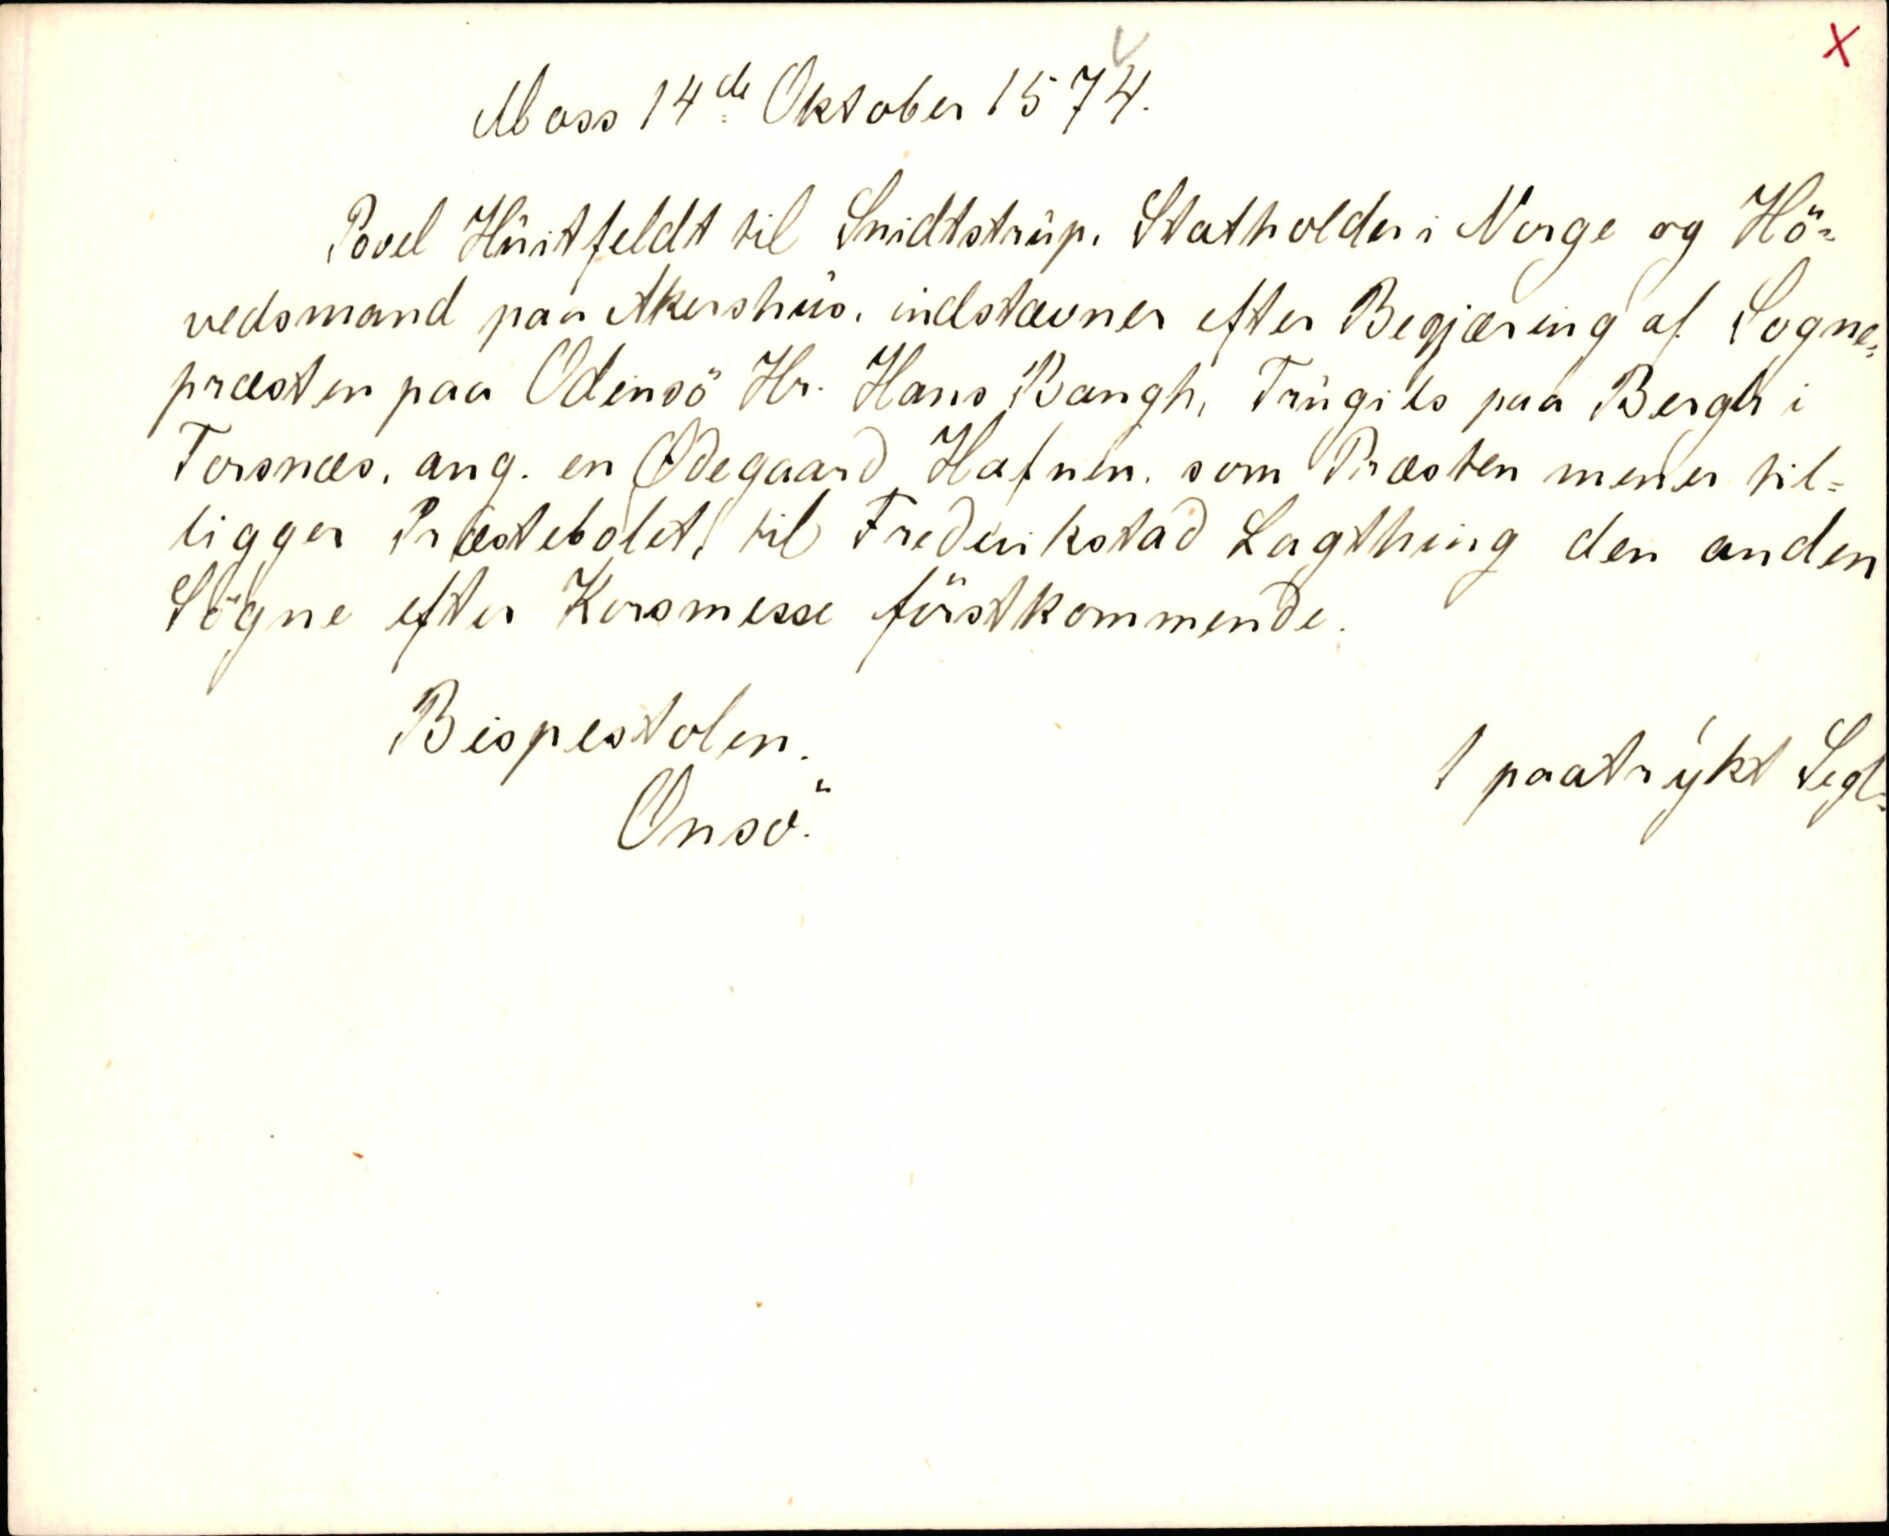 Moss 14de Oktober 1574.
Povel Hüitfeldt til Snidtstrüp. Statholder i Norge og Hö=
vedsmand paa Akershüs. indstævner efter Begjæring af Sogne=
præsten paa Odensö Hr. Hans Bangh, Trügils paa Bergh i
Torsnæs. ang. en Ødegaard Hafnen. som Præsten mener til=
ligger Præstebolet, til Frederikstad Lagthing den anden
Sögne efter Korsmesse förstkommende.
Bispestolen.
1 paatrykt Segl=
Onsö.